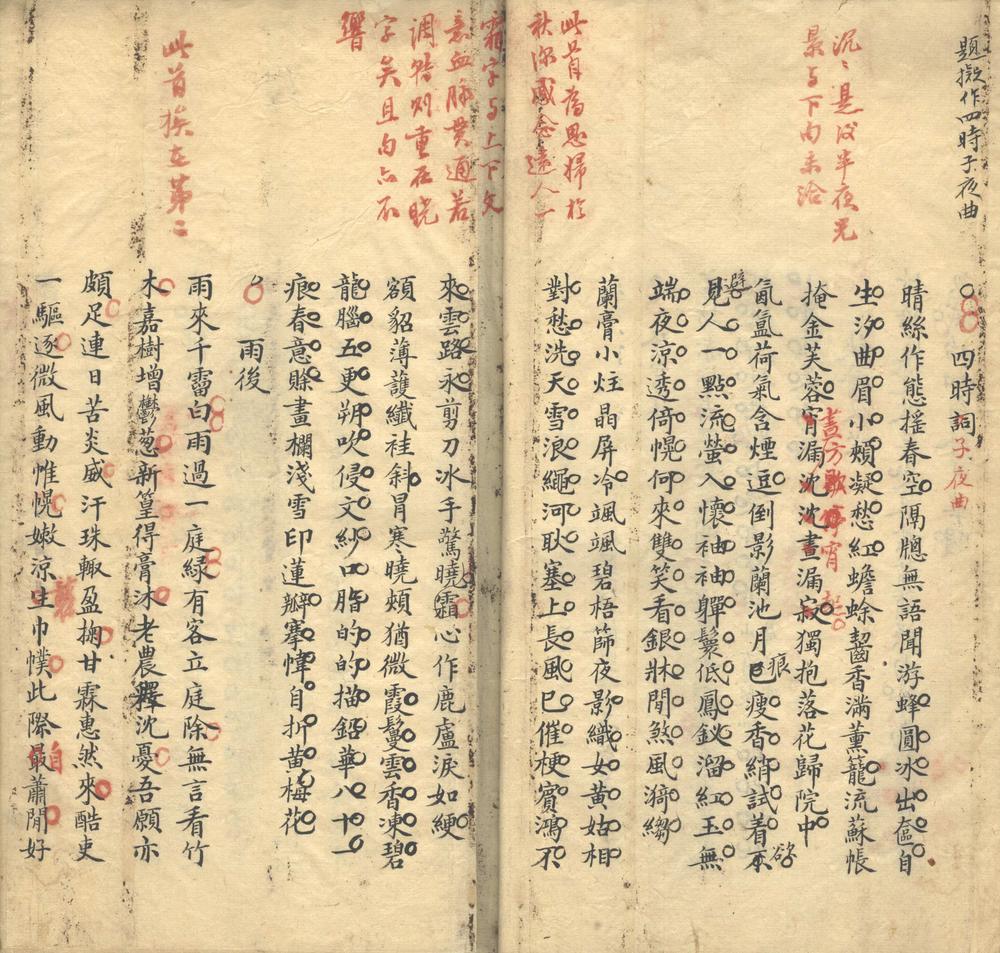 題擬作四時子夜曲
沉沉是收半夜光
景与下句未洽
此首為思婦於
秋深感念遠人一
霜字与上下文
意血脉貫通若
調轉則重在曉
字矣且句亦不
響
此首挨在第二
四時詞子夜曲
晴絲作態搖春空隔牕無語聞游蜂圓冰出奩自
生汐曲眉小頰凝愁紅蟾蜍齧香滿薰籠流蘇帳
掩金芙蓉宵漏沈沈晝漏寂獨抱落花歸院中
晝方歇 宵
氤氳荷氣含煙逗倒影蘭池月痕瘦香綃試着不
欲
避
見人一點流螢入懷袖袖嚲鬟低鳳釵溜紅玉無
端夜涼透倚幌何來雙笑看銀牀閒煞風漪縐
蘭膏小炷晶屏冷颯颯碧梧篩夜影織女黃姑相
對愁洗天雪浪繩河耿塞上長風已催梗賓鴻不
來雲路永剪刀冰手驚曉霜心作鹿盧淚如綆
額貂薄護纖袿斜胃寒曉頰猶微霞鬟雲香凍碧
龍腦五更朔吹侵文紗口脂的的描鉛華八十一
痕春意賒畫欄淺雪印蓮瓣搴幃自折黃梅花
雨後
雨來千雷白雨過一庭綠有客立庭除無言看竹
木嘉樹增鬱葱新篁得膏沐老農釋沈憂吾願亦
頗足連日苦炎威汗珠輙盈掬甘霖惠然來酷吏
一驅逐微風動惟幌嫩涼生巾幞此際最蕭閒好
自